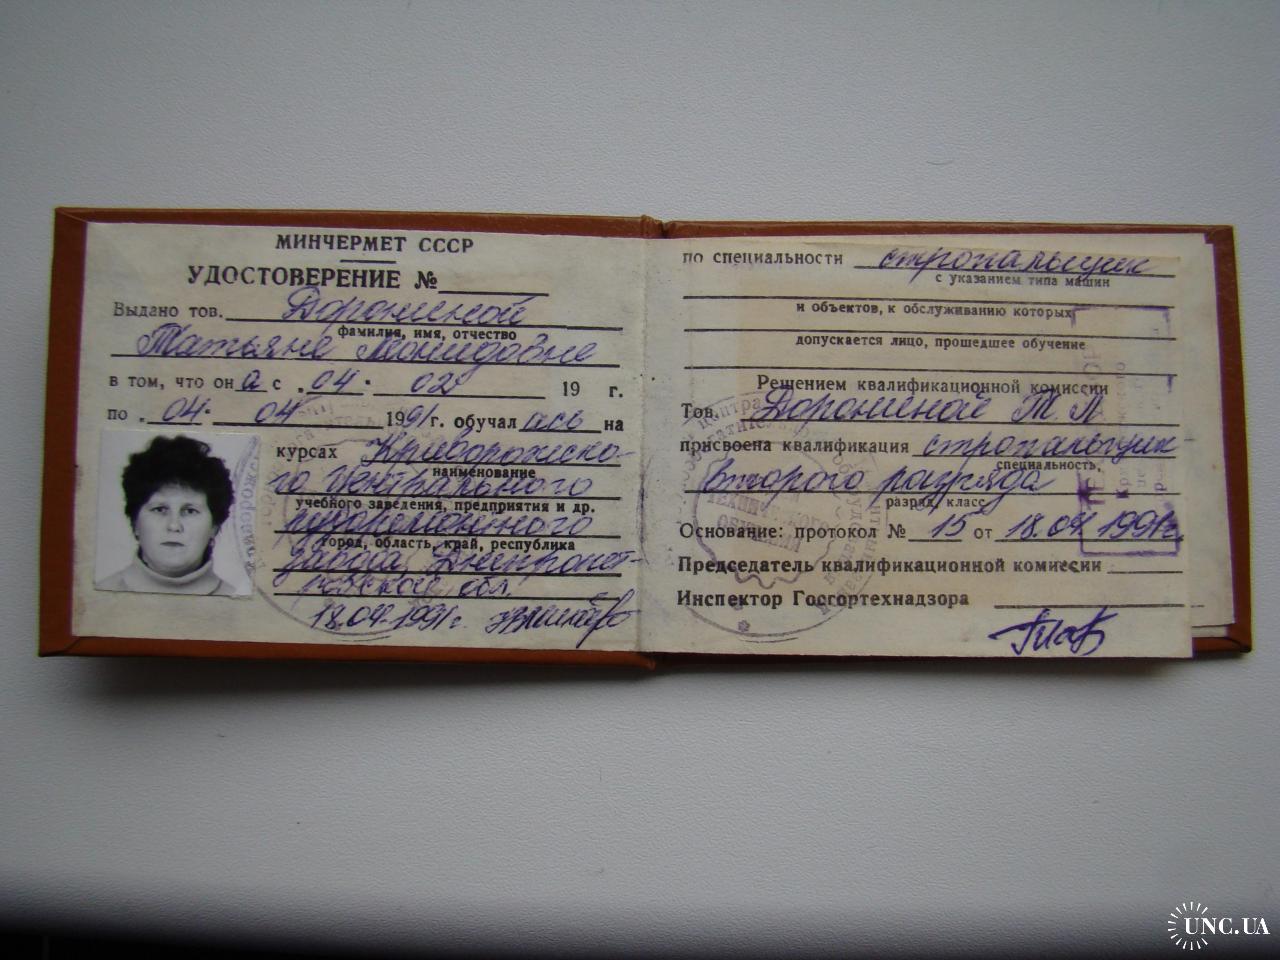 МИНЧЕРМЕТ СССР
УДОСТОВЕРЕНИЕ №
Выдано тов. Дорониной
фамилия, имя, отчество
Татьяне Леонидовне
в том, что он а с . 04 . 02 19 г.
по . 04 . 04 1991 г. обучал ась на
курсах Криворожско-
наименование
го Центрального
учебного заведения, предприятия и др.
рудоремонтного
город, область, край, республика
завода Днепропет-
ровской обл.
18.04.1991г.
по специальности стропальщик
с указанием типа машин
и объектов, к обслуживанию которых
допускается лицо, прошедшее обучение
Решением квалификационной комиссии
Тов. Дорониной Т Л
присвоена квалификация стропальщик
специальность,
второго разряда
разряд, класс
Основание: протокол № 15 от 18.04.1991г.
Председатель квалификационной комиссии
Инспектор Госгортехнадзора
ТЕХНИЧЕСКОГО
ОБУЧЕНИЯ
UNC.UA